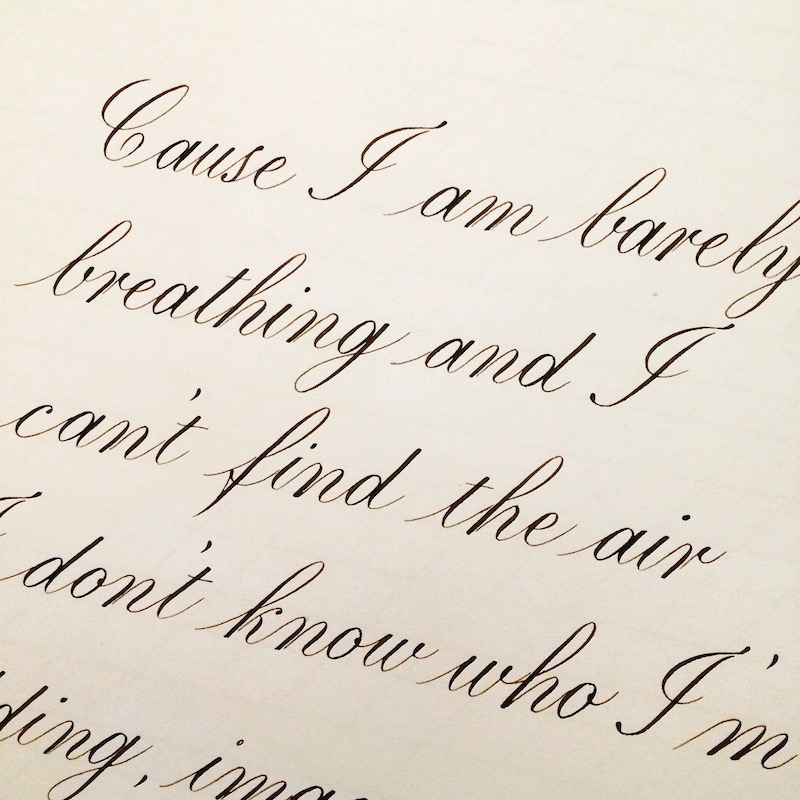 Cause I am barely
breathing and I
can't find the air
I don't know who I'm